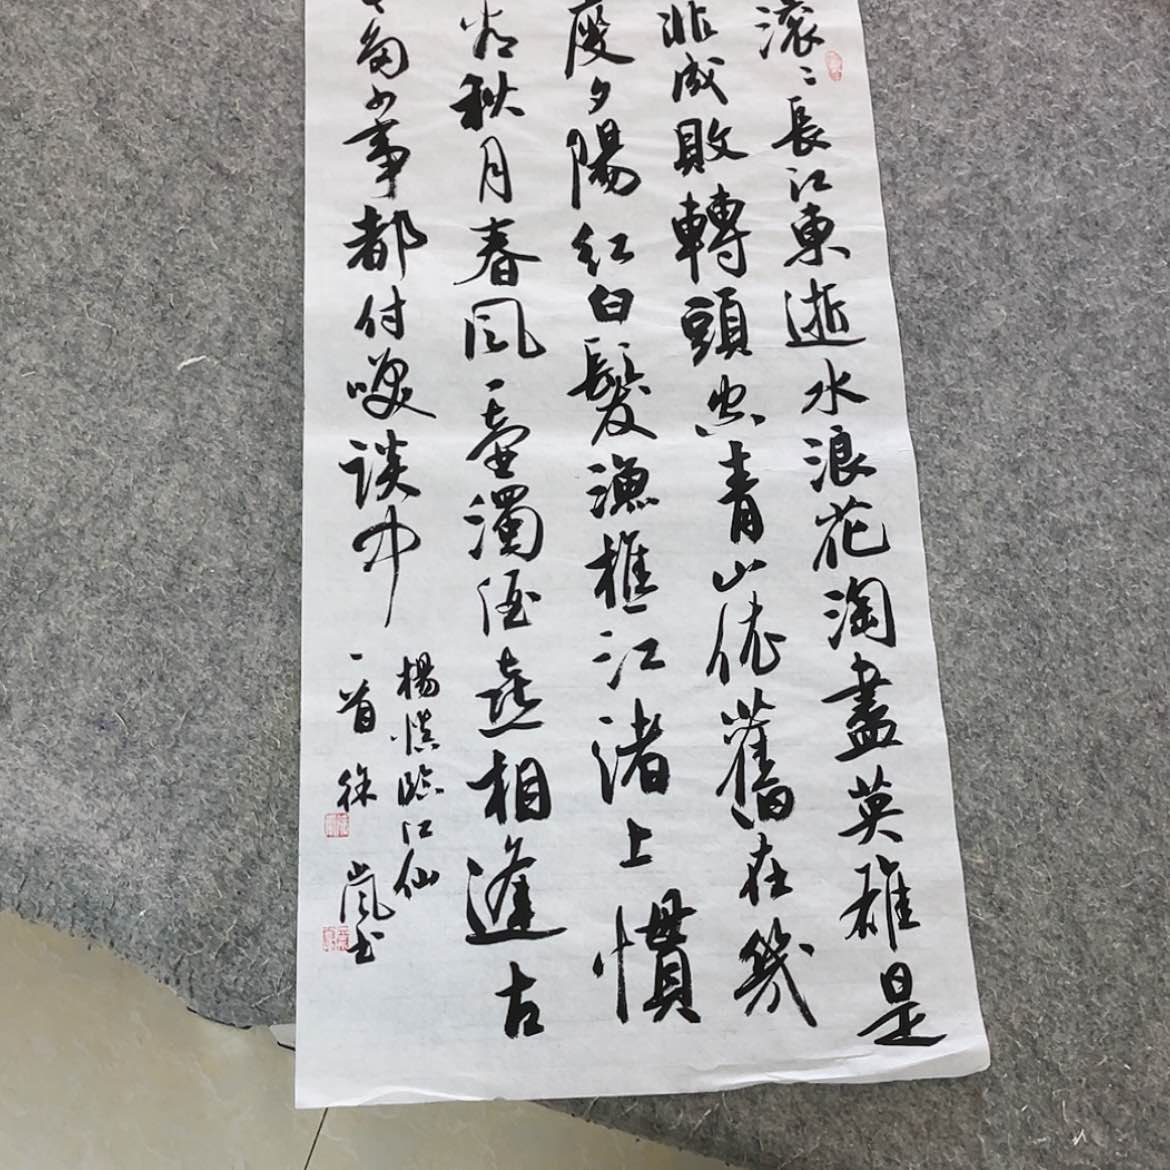 滚〻長江東逝水浪花淘盡英雄是
非成敗轉頭空青山依舊在幾
度夕陽紅白髮漁樵江渚上慣
看秋月春風一壺濁酒喜相逢古
今多少事都付笑談中
楊慎臨江仙
一首 徐嵐书